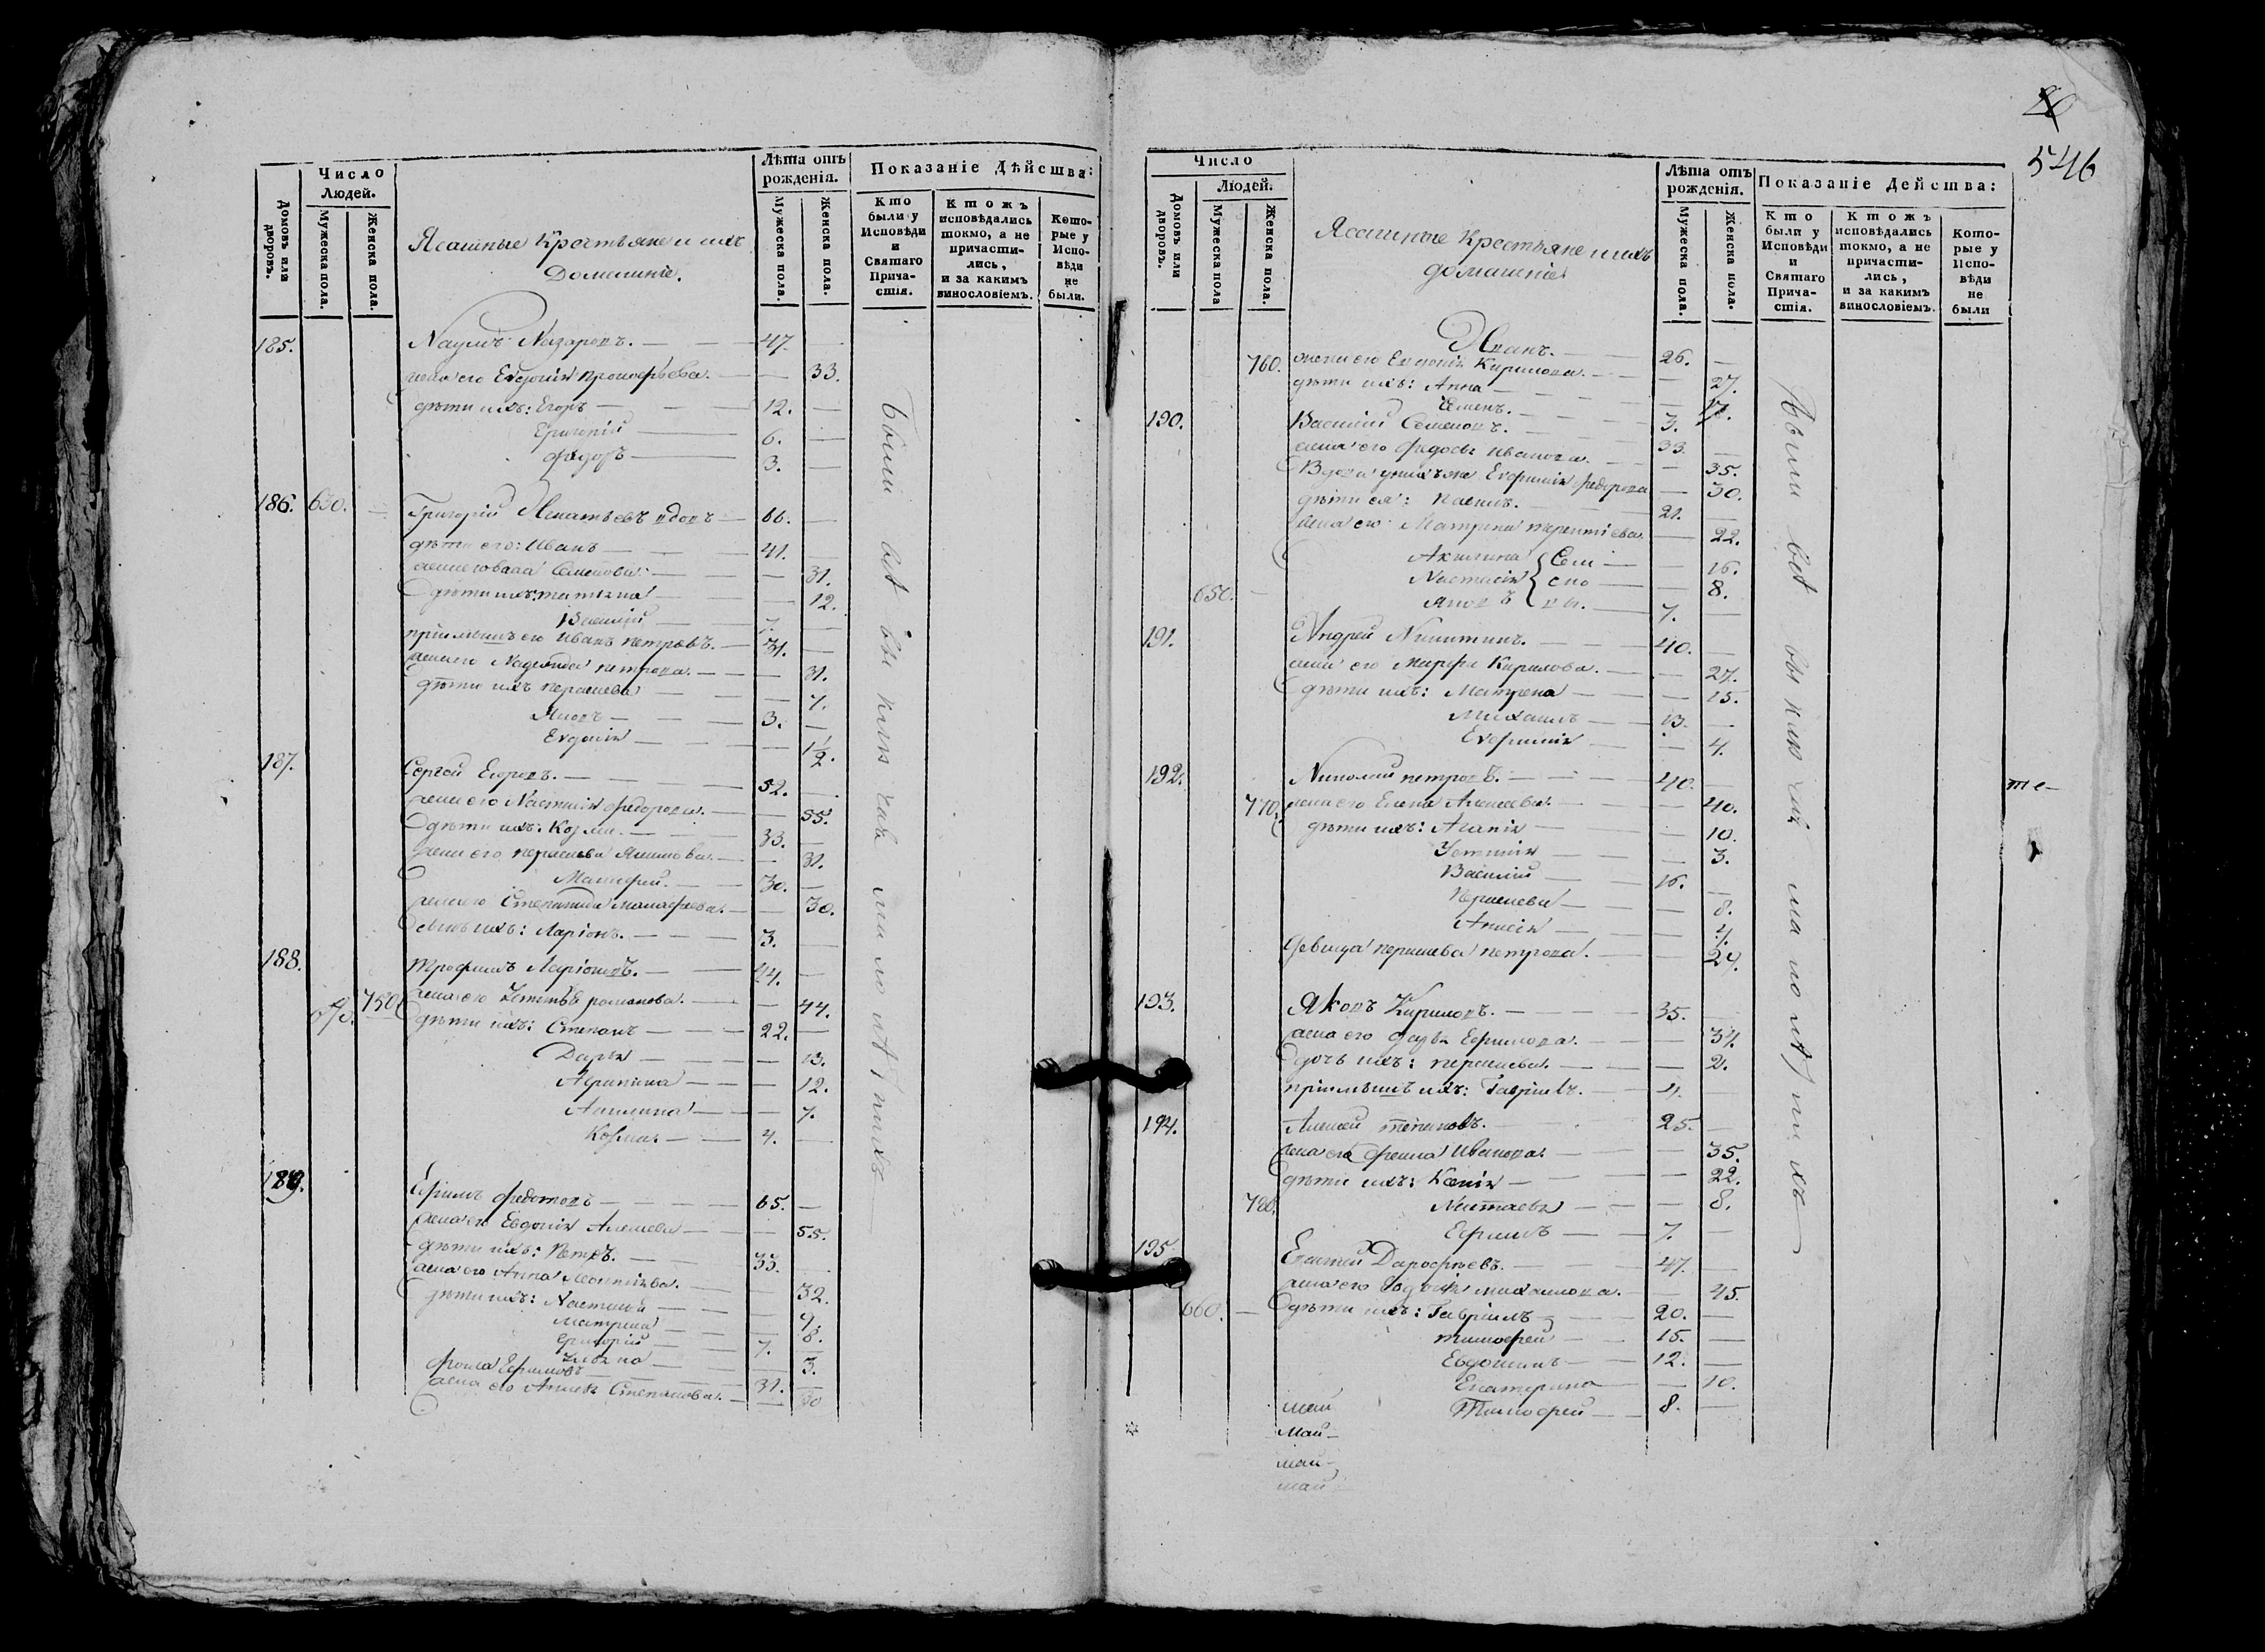 Число
Людей.
Домовъ или дворовъ.
Мужеска пола.
Женска пола.
Ясашные Крестьяне и ихъ
Домашніе.
Лѣта отъ
рожденія.
Мужеска пола.
Женска пола.
Показаніе Дѣйства:
Кто
были у
Исповѣди
и
Святаго
Прича-
стія.
Ктожъ
исповѣдались
токмо, а не
причасти-
лись,
и за какимъ
винословіемъ.
Кото-
рые у
Испо-
вѣди
не
были.
185. Наумъ Назаровъ. 47.
жена его Евдокія Прокофьева. 33.
дѣти ихъ: Егоръ 12.
Григорій 6.
Федоръ 3.
186. 630. Григорій Игнатьевъ вдовъ 66.
дѣти его: Иванъ 41.
Семенова 31.
дѣти ихъ: татіяна 12.
Василій 7.
пріимышъ его Иванъ петровъ. 31.
жена его Надежда петрова. 31.
дѣти ихъ параскева 7.
Яковъ 3.
Евдокія 1½.
187. Сергей Егоровъ. 52.
жена его Настасія Федорова. 55.
дѣти ихъ: Козма. 33.
жена его параскева Якимова. 31.
30.
жена его Степанида 30.
сынъ ихъ: Ларіонъ. 3.
188. Трофимъ Ларіоновъ. 44.
640. 750 жена его романова. 44.
дѣти ихъ: Степанъ 22.
Дарья 13.
Агрипина 12.
Акилина 7.
Козма. 4.
189. Ефимъ Федотовъ 65.
жена его Евдокія Алексеева 55.
дѣти ихъ: Петръ. 33.
жена его Анна 32.
дѣти ихъ: Настасія 9.
Матрена 8.
Григорій 7.
3.
Фома Ефимовъ 31.
жена его Степанова. 30
Были всѣ
80
546
Число
Людей.
Домовъ или дворовъ.
Мужеска пола
Женска пола.
Ясашные Крестьяне и ихъ
домашніе
Лѣта отъ
рожденія.
Мужеска пола.
Женска пола.
Показаніе Действа:
Кто
были у
Исповѣди
и
Святаго
Прича-
стія.
Ктожъ
исповѣдались
токмо, а не
причасти-
лись,
и за какимъ
винословіемъ.
Кото-
рые у
Испо-
вѣди
не
были
Иванъ. 26.
760. жена его Евдокія Кирилова. 27.
дѣти ихъ: Анна 17.
Семенъ. 3.
190. Василій Семеновъ. 33.
жена его Федосья Иванова. 35.
Вдова Евфимія Федорова 30.
дѣти ея: 21.
жена его Матрена терентіева. 22.
Акилина 16.
Настасія 8.
650. Яковъ 7.
191. Андрей Никитинъ. 40.
жена его Марфа Кирилова. 27.
дѣти ихъ: Матрена 15.
Михаилъ 13.
Евфимія 4.
192. Николай петровъ. 40.
770. жена его Елена Алексеева. 40.
дѣти ихъ: Агапія 10.
Устинія 3.
Василій 16.
Параскева 8.
Анисія 4.
девица параскева петрова. 29.
193. Яковъ Кириловъ. 35.
жена его Ефимова. 34.
дочь ихъ: параскева. 2.
пріимышъ ихъ: Гавріилъ. 4.
194. Алексей 25.
жена его Иванова. 35.
дѣти ихъ: Ксенія 22.
780. 8.
Ефимъ 7.
195. Дарофеевъ. 47.
жена его михаилова. 45.
660. дѣти ихъ: Гавріилъ 20.
тимофей 15.
Евдокимъ 12.
Екатерина 10.
Тимофей 8.
Были всѣ
те-
май
май
май
май